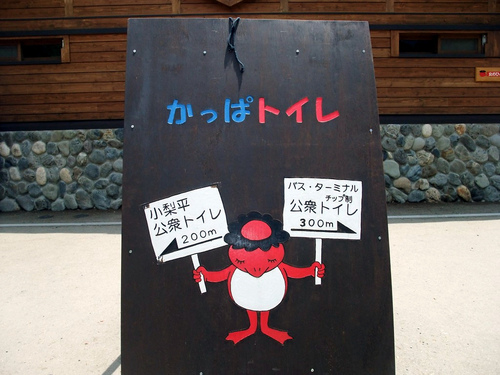 かっぱトイレ
小梨平
公衆トイレ
200m
バス・ターミナル
チップ制
公衆トイレ
300m